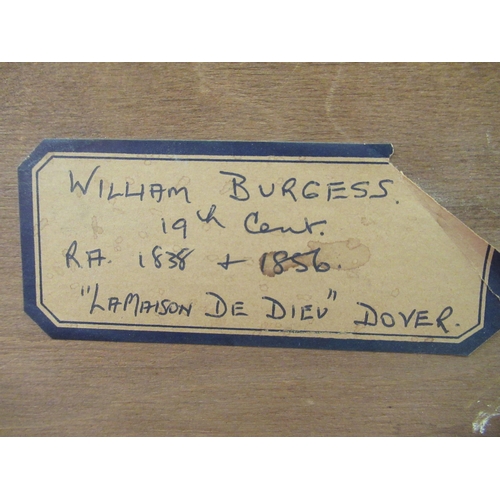 WILLIAM BURGESS.
19th Cent.
RA. 1838 + 1856.
"LAMAISON DE DIEU" DOVER.